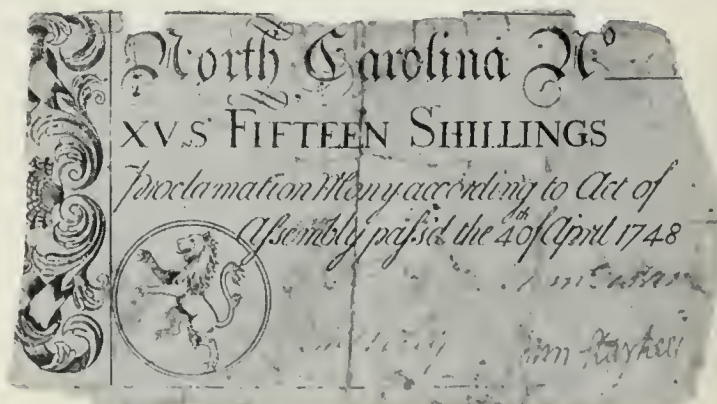 North Carolina No
XV.S FIFTEEN SHILLINGS
Proclamation Mony according to Act of
Assembly passd the 4th of April 1748
Starkey